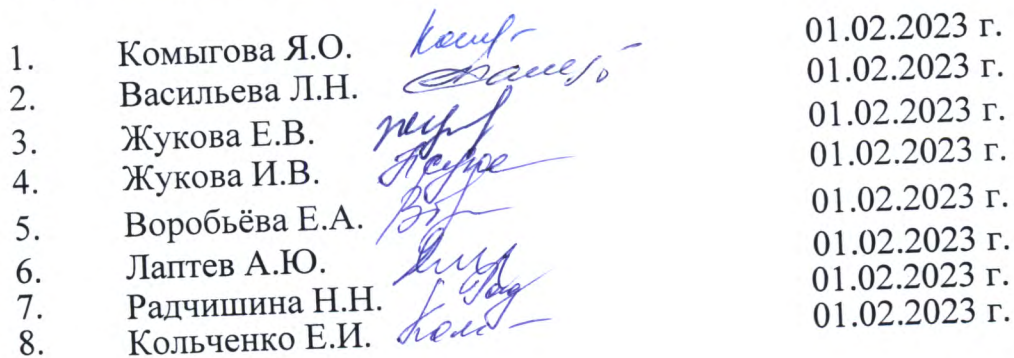 1. Комыгова Я.О. 01.02.2023 г.
2. Васильева Л.Н. 01.02.2023 г.
3. Жукова Е.В. 01.02.2023 г.
4. Жукова И.В. 01.02.2023 г.
5. Воробьёва Е.А. 01.02.2023 г.
6. Лаптев А.Ю. 01.02.2023 г.
7. Радчишина Н.Н. 01.02.2023 г.
8. Кольченко Е.И. 01.02.2023 г.